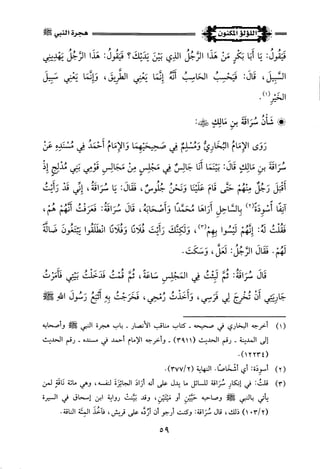 اللؤلؤ المكنون
هجرة النبي ﷺ
فَيَقُولُ: يَا أَبَا بَكْرٍ مَنْ هَذَا الرَّجُلُ الذِي بَيْنَ يَدَيْكَ؟ فَيَقُولُ: هَذَا الرَّجُلُ يَهْدِينِي
السَّبِيلَ، قَالَ: فَيَحْسِبُ الحَاسِبُ أَنَّهُ إِنَّمَا يَعْنِي الطَّرِيقَ، وَإِنَّمَا يَعْنِي سَبِيلَ
الخَيْرِ(١).
● شَأْنُ سُرَاقَةَ بنِ مَالِكٍ :
رَوَى الإِمَامُ البُخَارِيُّ وَمُسْلِمٌ فِي صَحِيحَيْهِمَا وَالإِمَامُ أَحْمَدُ فِي مُسْنَدِهِ عَنْ
سُرَاقَةَ بنِ مَالِكٍ قَالَ: بَيْنَمَا أَنَا جَالِسٌ فِي مَجْلِسٍ مِنْ مَجَالِسِ قَوْمِي بَنِي مُدْلِجٍ إِذْ
أَقْبَلَ رَجُلٌ مِنْهُمْ حَتَّى قَامَ عَلَيْنَا وَنَحْنُ جُلُوسٌ، فَقَالَ: يَا سُرَاقَةُ، إِنِّي قَدْ رَأَيْتُ
آنِفًا أَسْوِدَةً(٢) بِالسَّاحِلِ أُرَاهَا مُحَمَّدًا وَأَصْحَابَهُ، قَالَ سُرَاقَةُ: فَعَرَفْتُ أَنَّهُمْ هُمْ،
فَقُلْتُ لَهُ: إِنَّهُمْ لَيْسُوا بِهِمْ(٣)، وَلَكِنَّكَ رَأَيْتَ فُلَانًا وَفُلَانًا انْطَلَقُوا يَبْتَغُونَ ضَالَّةً
لَهُمْ. فَقَالَ الرَّجُلُ: لَعَلَّ، وَسَكَتَ.
قَالَ سُرَاقَةُ: ثُمَّ لَبِثْتُ فِي المَجْلِسِ سَاعَةً، ثُمَّ قُمْتُ فَدَخَلْتُ بَيْتِي فَأَمَرْتُ
جَارِيَتِي أَنْ تُخْرِجَ لِي فَرَسِي، وَأَخَذْتُ رُمْحِي، فَخَرَجْتُ بِهِ أَتْبَعُ رَسُولَ اللهِ ﷺ
(١) أخرجه البخاري في صحيحه ـ كتاب مناقب الأنصار ـ باب هجرة النبي ﷺ وأصحابه
إلى المدينة ـ رقم الحديث (٣٩١١) ـ وأخرجه الإمام أحمد في مسنده ـ رقم الحديث
(١٢٢٣٤).
(٢) أسوِدَة: أي أشخَاصًا. النهاية (٣٧٧/٢).
(٣) قلتُ: في إنكار سُرَاقة للسائل ما يدل على أنه أرَادَ الجَائِزَةَ لنفسه، وهي مائة نَاقَةٍ لمن
يأتي بالنبي ﷺ وصاحبه حَيَّيْنِ أو مَيِّتَيْنِ، وقد بَيَّنَتْ رواية ابن إسحاق في السيرة
(١٠٣/٢) ذلك، قال سُرَاقَة: وكنت أرجو أن أرُدَّه على قريش، فآخُذَ المِئَة الناقة.
٥٩